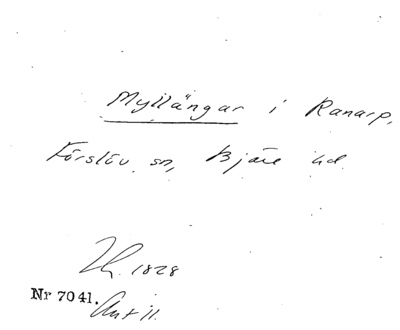 Myllängar i Ranarp,
Förslöv sn, Bjäre hd.
1828
Nr 7041.